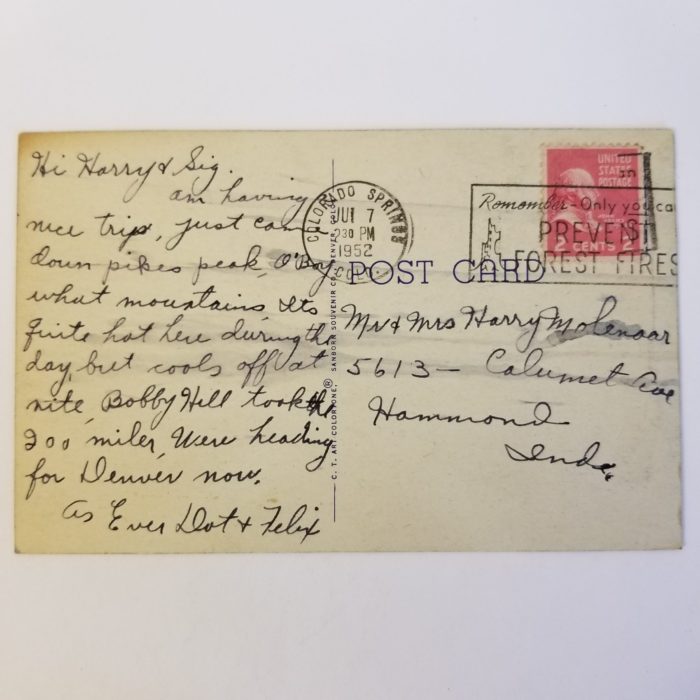 Hi Harry & Sig.
am having
nice trip, just came
down pikes peak, O'Boy
what mountains, Its
quite hot here during the
day, but cools off at
nite, Bobby Hill took the
200 miler, Were heading
for Denver now.
As Ever Dot & Felix
C. T. ART COLORTONE® SANBORN SOUVENIR CO., DENVER, COLO.
COLORADO SPRINGS
JUL 7
230 PM
1952
COLO.
UNITED
STATES
POSTAGE
2 CENTS 2
Remember - Only you can
PREVENT
FOREST FIRES
POST CARD
Mr & Mrs Harry Molenaar
5613 - Calumet Ave
Hammond
Ind.